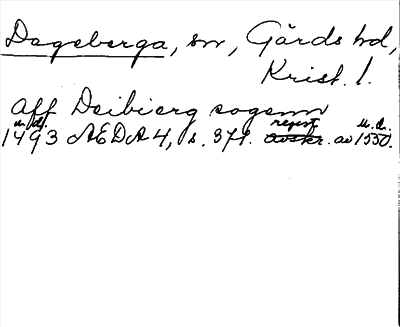 Degeberga, sn, Gärds hd,
Krist. l.
aff Deibierg sogenn
u.d. regest u.a.
1493 ÆDA 4, s. 371. avskr. av 1550.